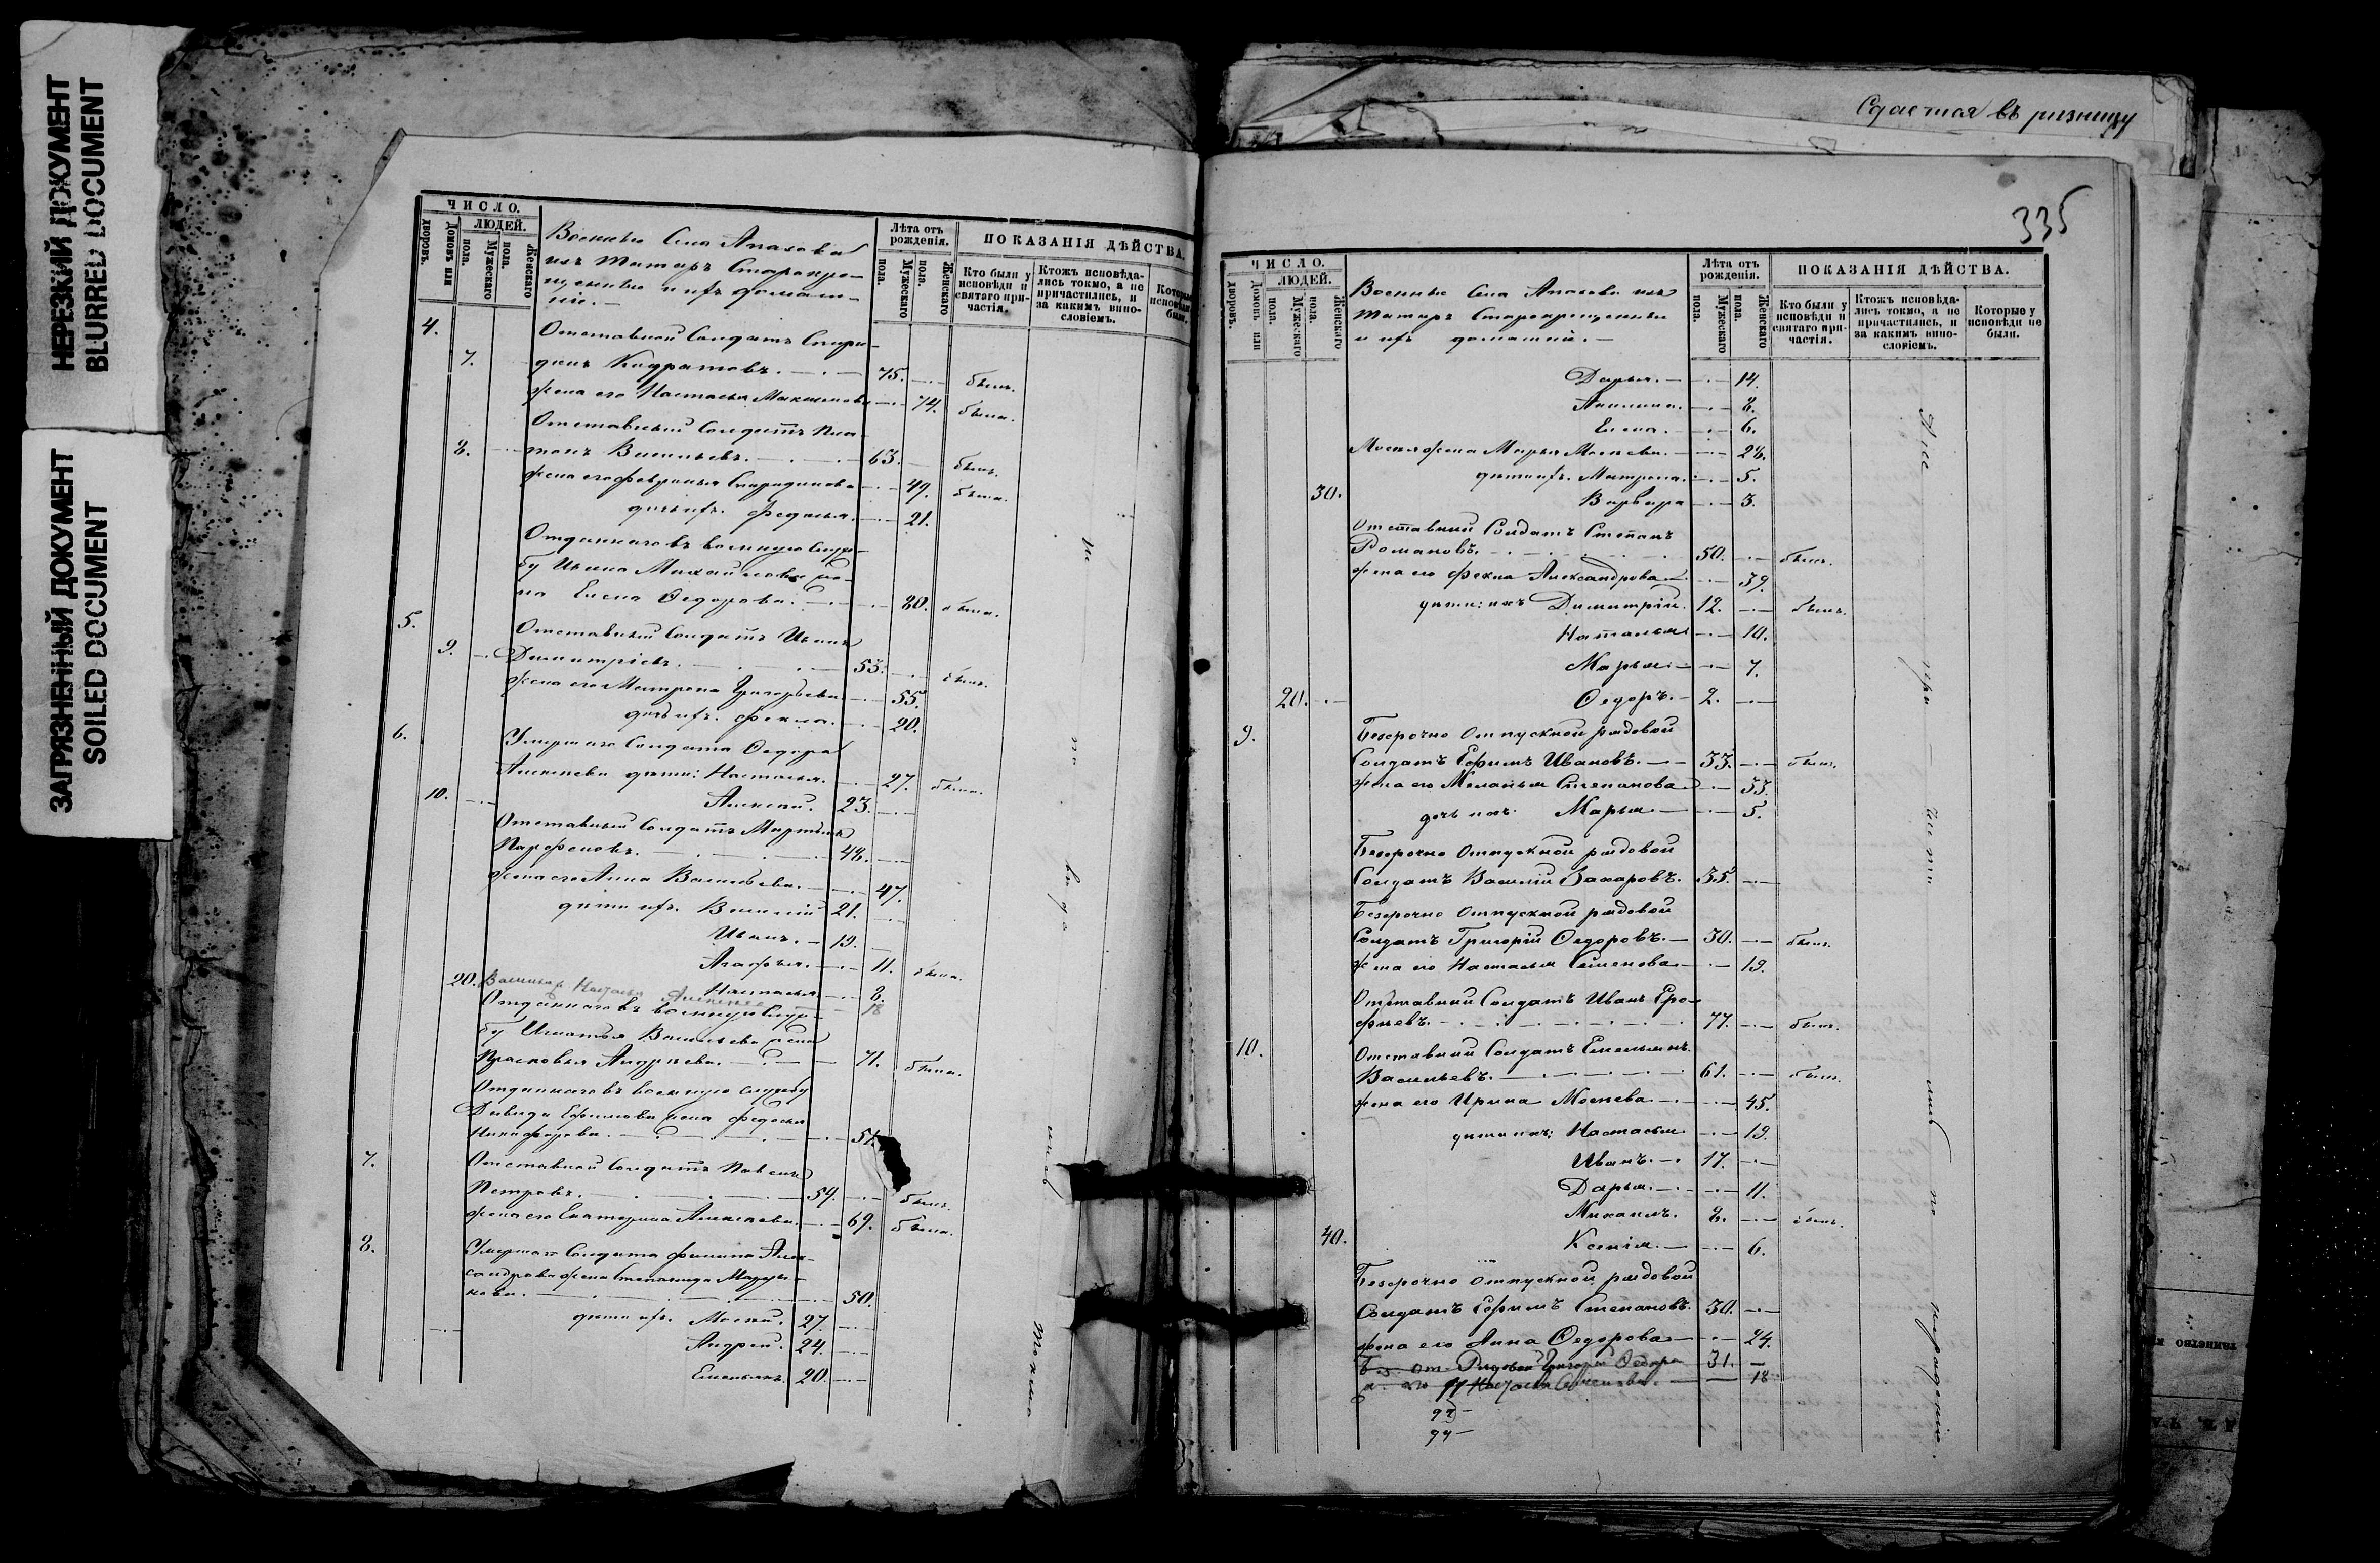 НЕРЕЗКИЙ ДОКУМЕНТ
BLURRED DOCUMENT
ЗАГРЯЗНЕННЫЙ ДОКУМЕНТ
SOILED DOCUMENT
ЧИСЛО.
Дворовъ.
Домовъ или
ЛЮДЕЙ.
Мужескаго пола.
Женскаго пола.
Военные Села Апазова
изъ татаръ Старокре-
щенные и ихъ домаш-
ніе.—
Лѣта отъ рожденія.
Мужескаго пола.
Женскаго пола.
ПОКАЗАНІЯ ДѢЙСТВА.
Кто были у исповѣди и святаго при-частія.
Ктожъ исповѣда-лись токмо, а не причастились, и за какимъ вино-словіемъ.
4. Отставной Солдатъ Спири-
7. донъ Кодратовъ. 75. былъ.
жена его Настасья Максимова 74. была.
Отставный Солдатъ Пла-
8. тонъ Васильевъ. 63. былъ.
жена его Февронья Спиридонова 49. была.
дочь ихъ. Федосья. 21.
Отданнаго въ военную служ-
бу Ивана Михайлова жe-
на Елена Ѳедорова. 80. была.
5. Отставный Солдатъ Иванъ
9. Димитріевъ. 53. былъ.
жена его Матрена Григорьева. 55.
дочь ихъ. Фекла. 20.
6. Умершаго Солдата Ѳедора
Алексѣева дѣти: Настасья. 27. была.
10. Алексѣй. 23.
Отставный Солдатъ Мартынъ
Парфеновъ. 48.
жена его Анна Васильева. 47.
дѣти ихъ. Василій 21.
Иванъ. 19.
Агафья. 11. была.
20. Настасья 8.
18
Отданнаго въ военную служ-
бу Игнатья Васильева жена
Прасковья Андреева. 71. была.
Отданнаго въ военную службу
Давида Ефимова жена Федосья
Никифорова. 51.
7. Отставной Солдатъ Павелъ
Петровъ. 59. былъ.
жена его Екатерина Алексѣева. 69. была.
8. Умершаго Солдата Филипа Алек-
сандрова жена Степанида
50.
дѣти ихъ. Мосей. 27.
Андрей. 24.
Емельянъ. 20.
токмо
Сдается въ ризницу
335
ЧИСЛО.
Дворовъ.
Домовъ или
ЛЮДЕЙ.
Мужескаго пола.
Женскаго пола.
Военные Села Апазова изъ
татаръ Старокрещенные
и ихъ домашніе.—
Лѣта отъ рожденія.
Мужескаго пола.
Женскаго пола.
ПОКАЗАНІЯ ДѢЙСТВА.
Кто были у исповѣди и святаго при-частія.
Ктожъ исповѣда-лись токмо, а не причастились, и за какимъ вино-словіемъ.
Которые у исповѣди не были.
Дарья. 14.
Акилина. 8.
Елена. 6.
Мосея жена Марья Мосеева. 28.
дѣти ихъ. Матрена. 5.
30. Варвара 3.
Отставный Солдатъ Степанъ
Романовъ. 50. былъ.
жена его Фекла Александрова 39.
дѣти: ихъ Димитрій. 12. былъ.
Наталья 10.
Марья. 7.
20. Ѳедоръ. 2.
9. Безсрочно Отпускной рядовой
Солдатъ Ефимъ Ивановъ. 33. былъ.
жена его Меланья Степанова 33.
дочь ихъ Марья 5.
Безсрочно Отпускной рядовой
Солдатъ Василій Захаровъ. 35.
Безсрочно Отпускной рядовой
Солдатъ Григорій Ѳедоровъ. 30. былъ.
жена его Настасья Семенова 19.
Отставный Солдатъ Иванъ Еро-
фѣевъ. 77. былъ.
10. Отставный Солдатъ Емельянъ
Васильевъ. 61. былъ.
жена его Ирина Мосеева. 45.
дѣти ихъ: Настасья 19.
Иванъ. 17.
Дарья. 11.
Михаилъ. 8. былъ.
40. Ксенія. 6.
Безсрочно отпускной рядовой
Солдатъ Ефимъ Степановъ. 30.
жена его Анна Ѳедорова 24.
Рядовой Григорій Ѳедоров 31.
18
по нерадѣнію.